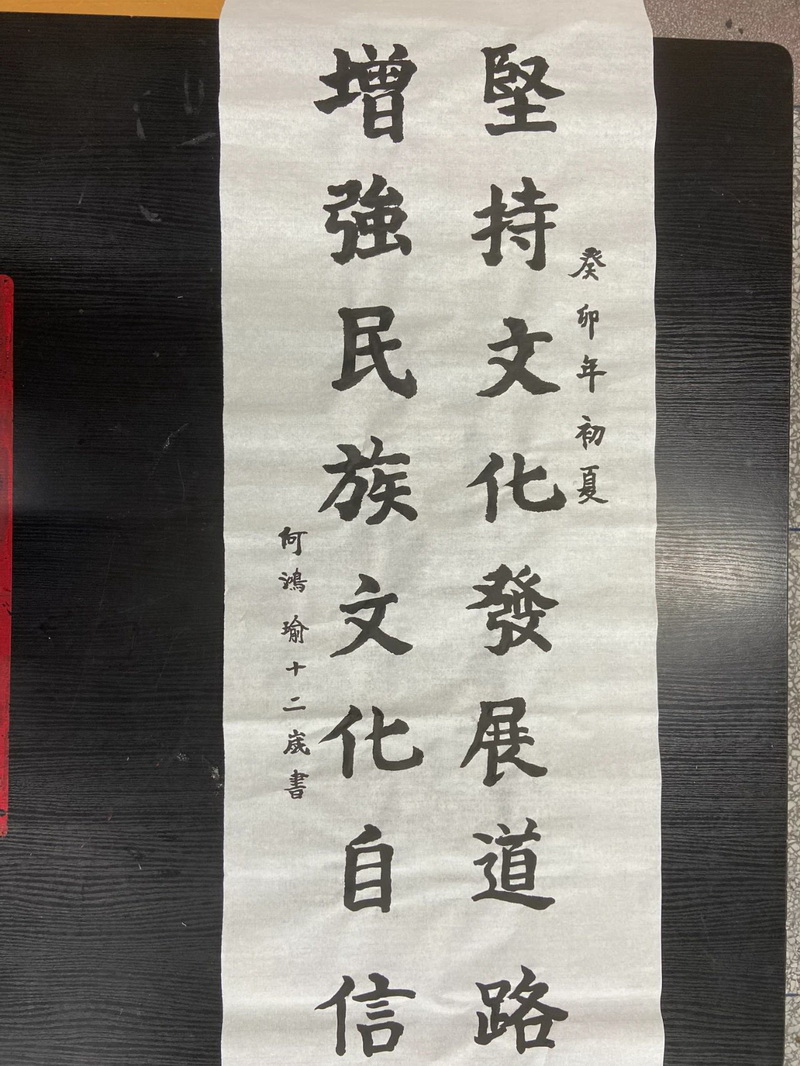 癸卯年初夏
堅持文化發展道路
增強民族文化自信
何鴻瑜十二歲書